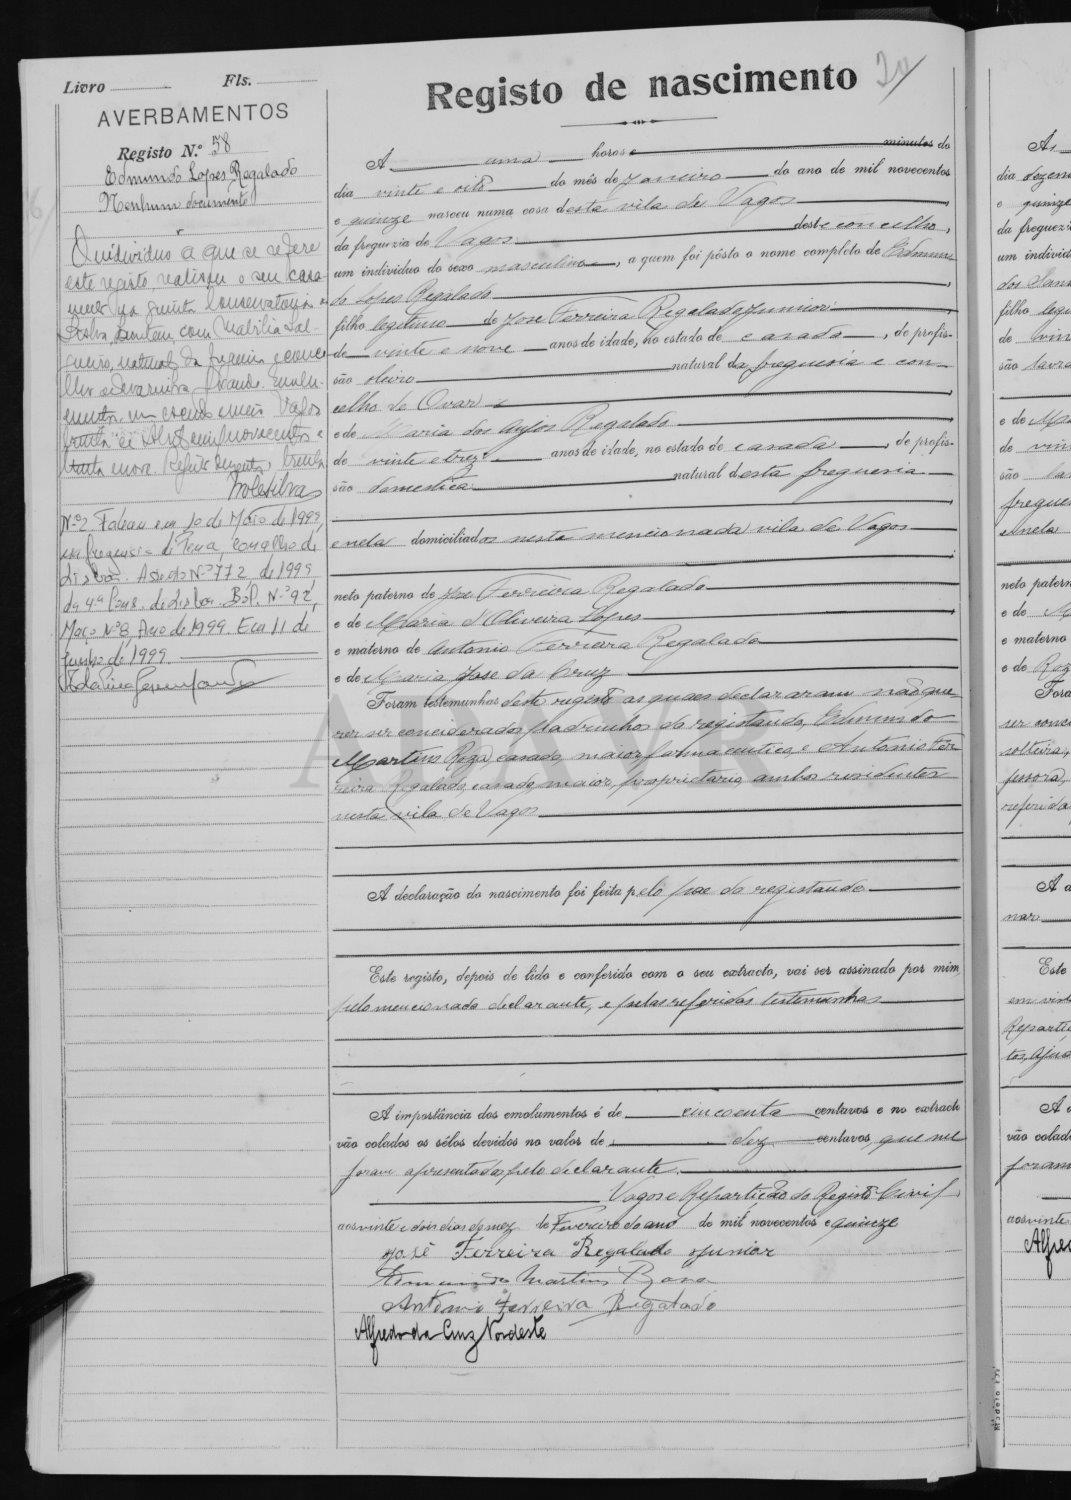 Livro Fls.
AVERBAMENTOS
Registo N.º 58
Edmundo Lopes Regalado
Nenhum documento
O individuo a que se refere
este registo realisou o seu casa-
mento na quinta Conservatoria
Lisboa com Sal-
gueiro, natural da freguesia e conce-
lho
Vagos
trinta de Abril mil novecentos e
trinta e nove.
N.º 2 Faleceu em 10 de Maio de 1999,
na freguesia de Pena, concelho de
Lisboa. Assento N.º 772 de 1999
da 4.ª Cons. de Lisboa. Bol. N.º 92,
Março Nº 8, Ano de 1999. Em 11 de
Junho de 1999.
Registo de nascimento
20
A uma horas e minutos do
dia vinte e oito do mês de Janeiro do ano de mil novecentos
e quinze nasceu numa casa desta vila de Vagos,
da freguezia de Vagos deste concelho,
um individuo do sexo masculino, a quem foi pôsto o nome completo de Edmun-
do Lopes Regalado
filho legitimo de Jose Ferreira Regalado Junior
de vinte e nove anos de idade, no estado de casado, de profis-
são oleiro natural da freguesia e con-
celho de Ovar e
e de Maria dos Anjos Regalado
de vinte e trez anos de idade, no estado de casada, de profis-
são domestica natural desta freguesia
e nela domiciliados nesta mencionada vila de Vagos
neto paterno de Jose Ferreira Regalado
e de Maria d'Oliveira Lopes
e materno de Antonio Ferreira Regalado
e de Maria Jose da Cruz
Foram testemunhas deste registo as quaes declararam não que-
rer ser considerados padrinhos do registando, Edmundo
Martins Roza, casado, maior, farmaceutico, e Antonio Fer-
reira Regalado, casado, maior, proprietario, ambos residentes
nesta vila de Vagos
A declaração do nascimento foi feita pelo pae do registando
Este registo, depois de lido e conferido com o seu extracto, vai ser assinado por mim,
pelo mencionado declarante, e pelas referidas testemunhas
A importância dos emolumentos é de cincoenta centavos e no extracto
vão colados os sêlos devidos no valor de dez centavos, que me
foram apresentados pelo declarante.
Vagos e Repartição do Registo Civil,
aos vinte e dois dias do mez de Fevereiro do ano de mil novecentos e quinze
José Ferreira Regalado Junior
Edmundo Martins Roza
Antonio Ferreira Regalado
Alfredo da Cruz Nordeste
As
dia dezen
e quinze
da freguezi
um individ
dos San
filho legi
de vin
são lavra
e de Ma
de vin
são
fregue
e nela
neto patern
e de M
e materno
e de Roz
Fora
ser cons
solteira,
fessora,
referida
A a
nar
Este
em vist
Reparti
A
vão colad
foram
aos vinte
Alfre
Modelo